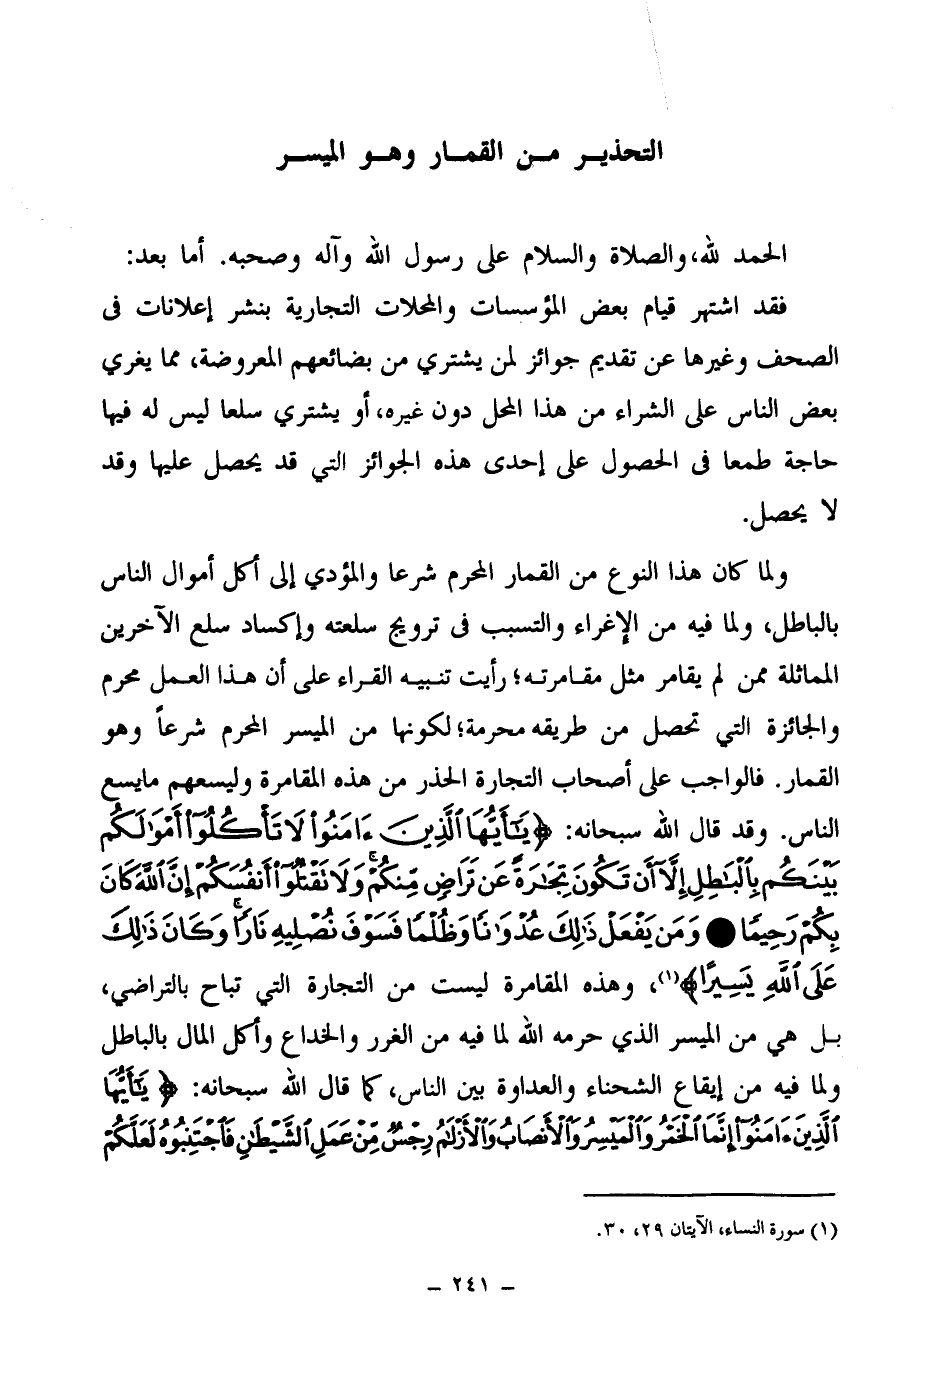 التحذير من القمار وهو الميسر
الحمد لله، والصلاة والسلام على رسول الله وآله وصحبه. أما بعد:
فقد اشتهر قيام بعض المؤسسات والمحلات التجارية بنشر إعلانات في
الصحف وغيرها عن تقديم جوائز لمن يشتري من بضائعهم المعروضة، مما يغري
بعض الناس على الشراء من هذا المحل دون غيره، أو يشتري سلعا ليس له فيها
حاجة طمعا في الحصول على إحدى هذه الجوائز التي قد يحصل عليها وقد
لا يحصل.
ولما كان هذا النوع من القمار المحرم شرعا والمؤدي إلى أكل أموال الناس
بالباطل، ولما فيه من الإغراء والتسبب في ترويج سلعته وإكساد سلع الآخرين
المماثلة ممن لم يقامر مثل مقامرته؛ رأيت تنبيه القراء على أن هذا العمل محرم
والجائزة التي تحصل من طريقه محرمة؛ لكونها من الميسر المحرم شرعاً وهو
القمار. فالواجب على أصحاب التجارة الحذر من هذه المقامرة وليسعهم مايسع
الناس. وقد قال الله سبحانه: ﴿يَٰٓأَيُّهَا ٱلَّذِينَ ءَامَنُوا۟ لَا تَأْكُلُوٓا۟ أَمْوَٰلَكُم
بَيْنَكُم بِٱلْبَٰطِلِ إِلَّآ أَن تَكُونَ تِجَٰرَةً عَن تَرَاضٍ مِّنكُمْ ۚ وَلَا تَقْتُلُوٓا۟ أَنفُسَكُمْ إِنَّ ٱللَّهَ كَانَ
بِكُمْ رَحِيمًا ● وَمَن يَفْعَلْ ذَٰلِكَ عُدْوَٰنًا وَظُلْمًا فَسَوْفَ نُصْلِيهِ نَارًا ۚ وَكَانَ ذَٰلِكَ
عَلَى ٱللَّهِ يَسِيرًا﴾(١)، وهذه المقامرة ليست من التجارة التي تباح بالتراضي،
بل هي من الميسر الذي حرمه الله لما فيه من الغرر والخداع وأكل المال بالباطل
ولما فيه من إيقاع الشحناء والعداوة بين الناس، كما قال الله سبحانه: ﴿يَٰٓأَيُّهَا
ٱلَّذِينَ ءَامَنُوٓا۟ إِنَّمَا ٱلْخَمْرُ وَٱلْمَيْسِرُ وَٱلْأَنصَابُ وَٱلْأَزْلَٰمُ رِجْسٌ مِّنْ عَمَلِ ٱلشَّيْطَٰنِ فَٱجْتَنِبُوهُ لَعَلَّكُمْ
(١) سورة النساء، الآيتان ٢٩، ٣٠.
– ٢٤١ –